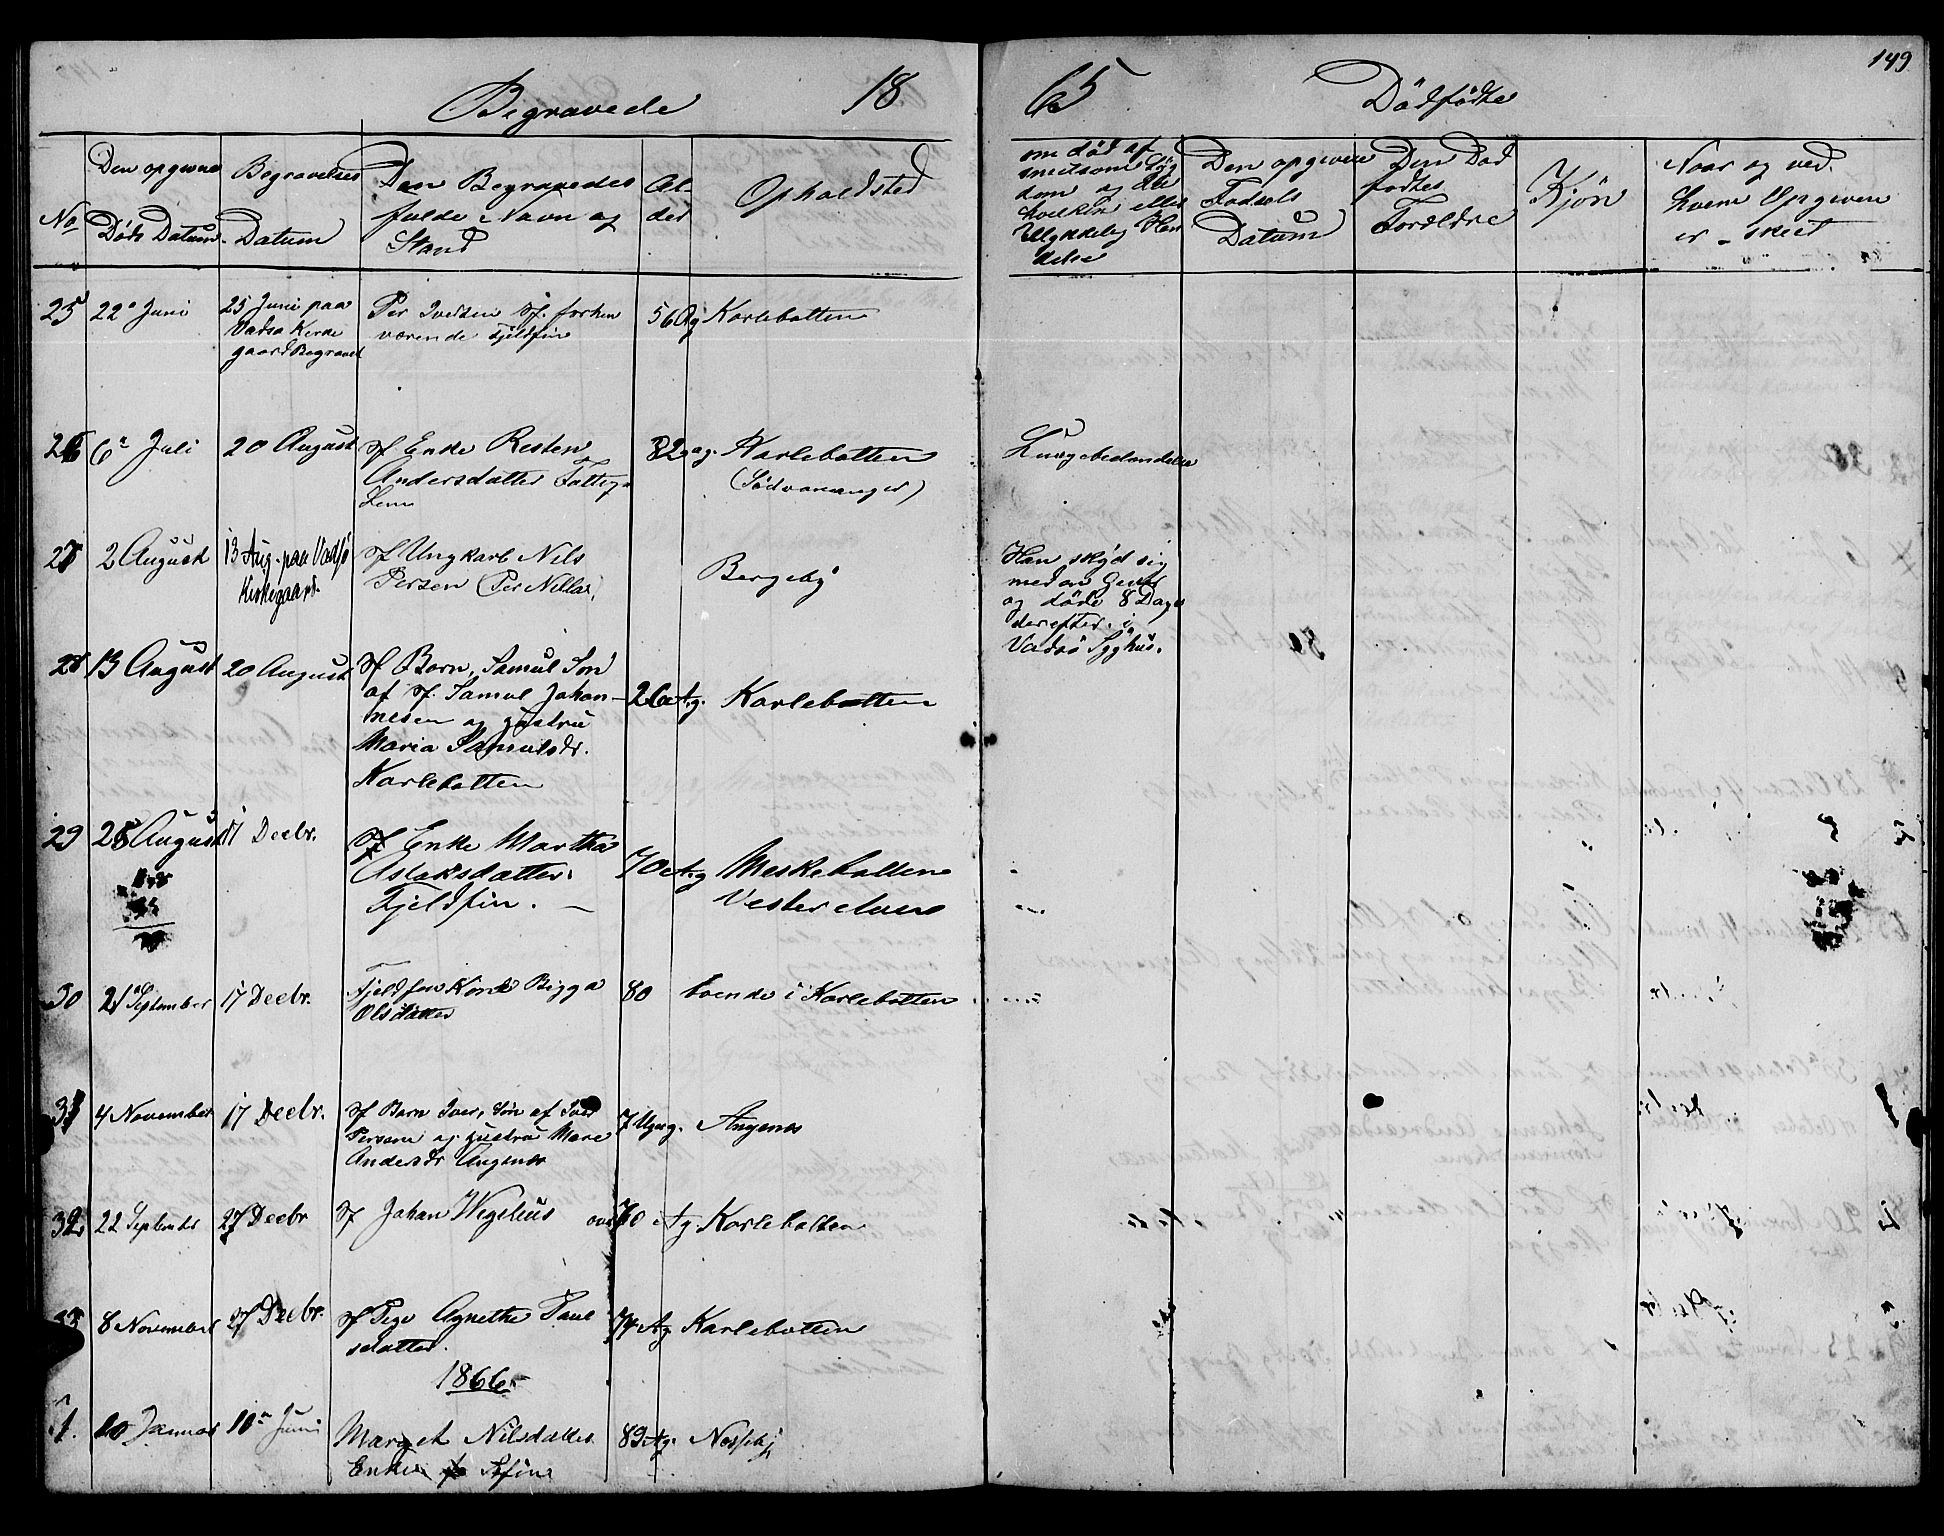 149
Begravede 18
65 Dödfödte
No
Den opgivne
Döds Datum
Begravelses
Datum
Den Begravedes
fulde Navn og
Stand
Al-
der
Opholdsted
om död af
smitsom Syg
dom og
hvilken eller
Ulykkelig Hen
delse
Den opgivne
Födsels
Datum
Den Död
födtes
Forældre
Kjön
Naar og ved
hvem Opgiven
er skeet
25 22 Juni
25 Juni paa
Vadsö Kirke
gaard Begravet
Per Iversen Sf. forhen
værende Fjeldfin
56 Ag Karlebotten
26 6 Juli 20 August
Sf Enke Resten
Andersdatter Fattig
Lem
82 ag. Karlebotten
(Sydvaranger)
Lungebetændelse
27 2 August
13 Aug. paa Vadsö
Kirkegaard.
Sf Ungkarl Nils
Persen (Per Nillas)
Bergeby
Han sköd sig
med en Gevær
og döde 8 Dage
derefter i
Vadsö Syghus.
28 13 August 20 August
Sf Barn, Samul Sön
af Sf. Samul Johan-
nesen og Hustru
Maria Samulsdr.
Karlebotten
2 Ag. Karlebotten
29 28 August 17 Decbr.
Sf Enke Martha
Aslaksdatter
Fjeldfin. —
70 Ag Meskebotten
30 21 September 17 Decbr.
Fjeldfin Kone Bigga
Olsdatter
80 boende i Karlebotten
31 4 November 17 Decbr.
Sf Barn Iver, Sön af Iver
Persen og Hustru Mare
Andersdr Angsnes
7 Ug. Angsnes
32 22 September 27 Decbr
Sf Johan Wegelius
70 Ag Karlebotten
33 8 November 27 Decbr.
Sf Pige Agnethe Paul
sdatter.
74 Ag Karlebotten
1866
1. 20 Januar 10 Juni
Marget Nilsdatter
Enke Sfin
89 Ag. Nesseby